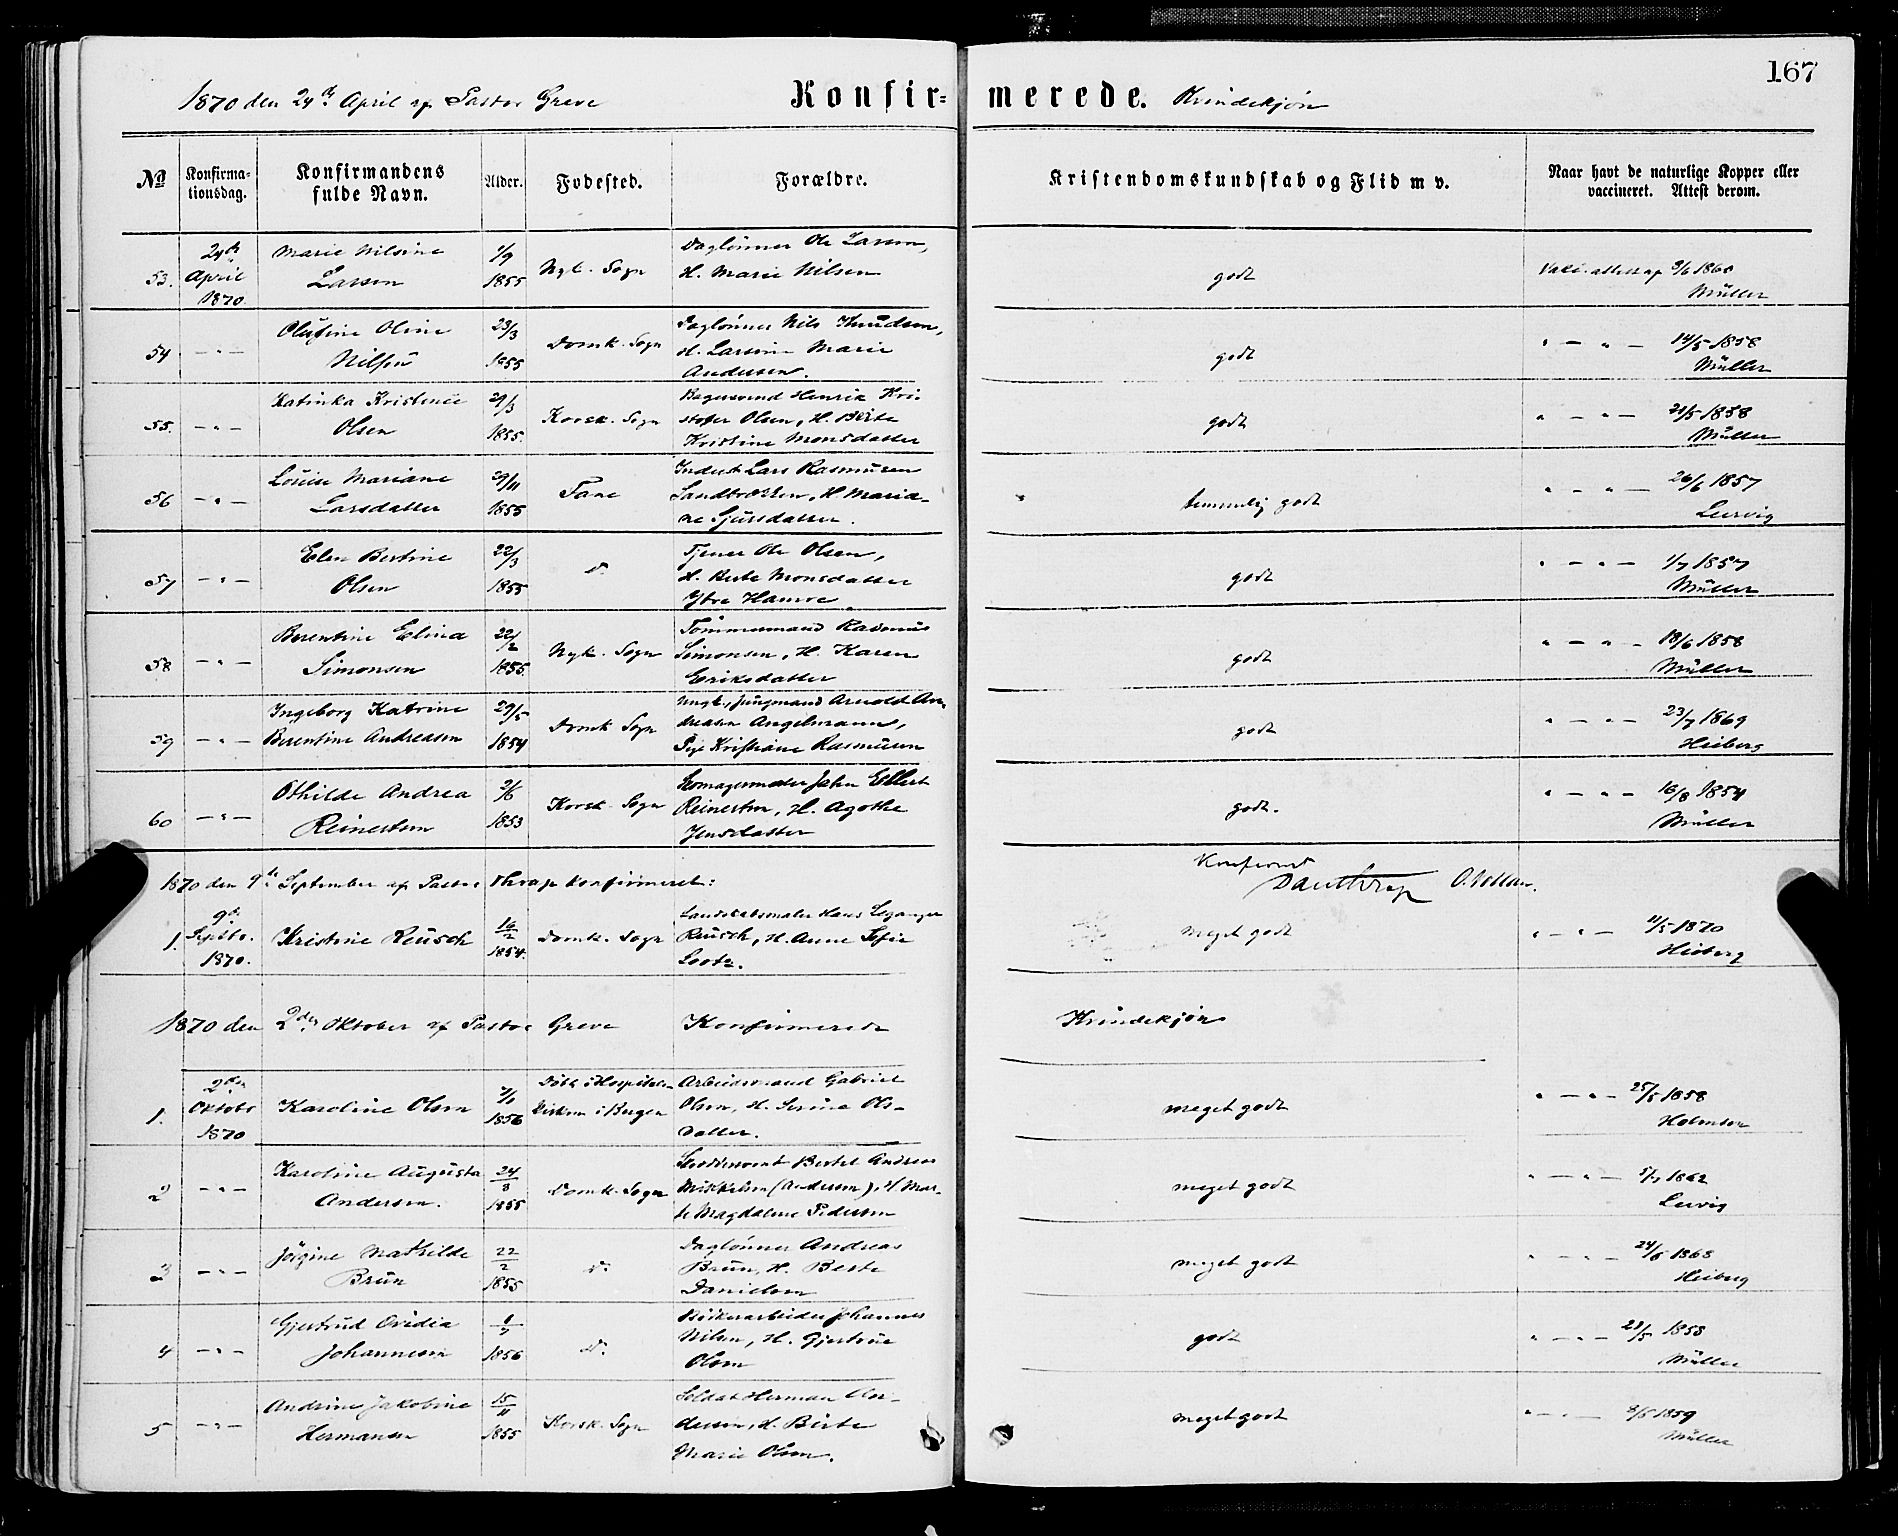 167
1870 den 24de April af Pastor Greve Konfir= merede. Kvindekjøn
No Konfirma-tionsdag. Konfirmandens fulde Navn. Alder. Fodested. Forældre. Kristendomskundskab og Flid m v. Naar havt de naturlige Kopper eller vaccineret. Attest derom.
53. 24de April 1870 Marie Nilsine Larsen 1/9 1855 Nyk. Sogn Daglønner Ole Larsen, H. Marie Nilsen godt Vacc. attest af 9/6 1860 Müller
54 - " - Oline Nilsen 23/3 1855 Domk. Sogn Daglønner Nils Knudsen, H. Larsine Marie Andersen. godt " - " - 14/5 1858 Müller
55. - " - Katinka Kristence Olsen 29/3 1855. Korsk. Sogn Bagersvend Henrik Kri-stofer Olsen, H. Birte Kristine Monsdatter godt " - " - 21/5 1858 Müller
56 - " - Lovise Mariane Larsdatter 29/11 1855 Fane Inderst Lars Rasmusen H Maria-ne Sjursdatter. temmelig godt " - " - 26/6 1857 Lervig
57 - " - Elen Bertine Olsen 22/3 1855 do Tjener Ole Olsen, H. Berte Monsdatter Ytre godt " - " - 1/7 1857 Müller
58 - " - Berentine Elina Simonsen 22/2 1855. Nyk. Sogn Tømmermand Rasmus Simonsen, H. Karen Eriksdatter godt " - " - 18/6 1858 Müller
59 - " - Ingeborg Katrine Berentine Andreasen 29/5 1854 Domk Sogn Ungk., Jungmand Arnold An-dreasen Angelmann, Pige Kristiane Rasmusen godt " - " - 23/7 1869 Heiberg
60 - " - Othilde Andrea Reinertsen 2/6 1853 Korsk. Sogn Skomagermester John Ellert Reinertsen, H. Agothe Jensdatter godt. " - " - 16/8 1854 Müller
1870 den 9de September af Pastor Thrap konfirmeret: Konfirmt DauThrap
1. 9de Septbr. 1870. Kristine Reusch 16/2 1854. Domk. Sogn Landskabsmaler Hans Leganger Reusch, H. Anne Sofie Lootz. meget godt " - " - 11/5 1870 Heiberg
1870 den 2den Oktober af Pastor Greve Konfirmerede Kvindekjøn
1. 2den Oktobr 1870 Karoline Olsen 1856 Døbt i Hospitals-kirken i Bergen Arbeidsmand Gabriel Olsen, H. Serine Ols-datter. meget godt " - " - 25/5 1858 Holmsen
2 - " - Karoline Augusta Andersen. 24/8 1855 Domk. Sogn Bertel Andreas Mikkelsen (Andersen), H. Mar-te Magdalene Pedersen meget godt " - " - 5/7 1862 Lervig
3 - " - Jörgine Mathilde Brun 22/2 1855 do Daglønner Andreas Brun, H. Berte Danielsen meget godt " - " - 24/6 1868 Heiberg
4 - " - Gjertrud Ovidia Johannesen 1/7 1856 do Bødkerarbeider Johannes Nilsen, H. Gjertrue Olsen godt " - " - 23/5 1858 Müller
5 - " - Andrine Jakobine Hermansen 15/11 1855 Korsk. Sogn Soldat Herman An-dersen, H. Birte Marie Olsen. meget godt " - " - 3/5 1859 Müller